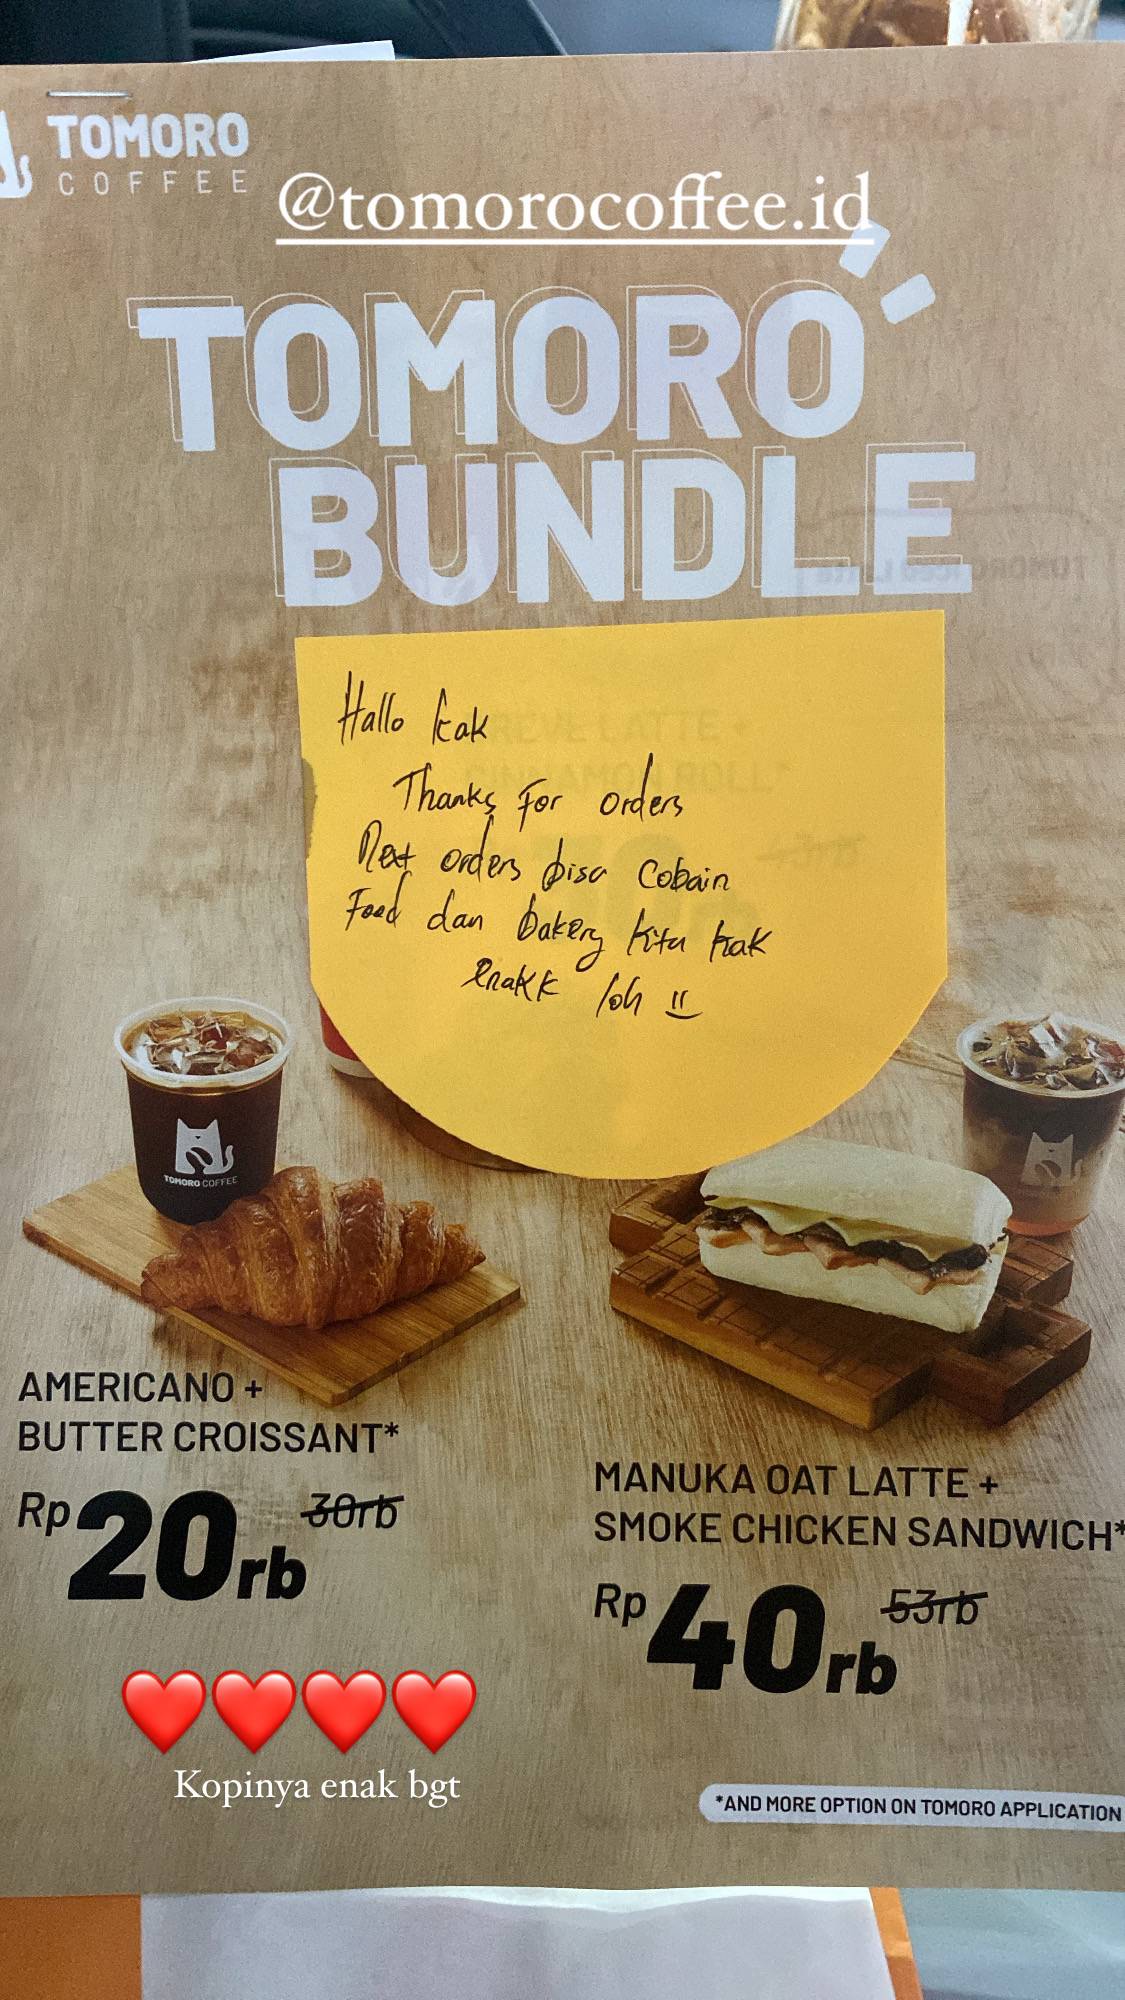 TOMORO
COFFEE
@tomorocoffee.id
TOMORO
BUNDLE
Hallo kak
Thanks For orders
Next orders bisa Cobain
Food dan bakery kita kak
enakk loh
TOMORO COFFEE
AMERICANO +
BUTTER CROISSANT*
Rp 20rb 30rb
MANUKA OAT LATTE +
SMOKE CHICKEN SANDWICH*
Rp 40rb 53rb
Kopinya enak bgt
*AND MORE OPTION ON TOMORO APPLICATION